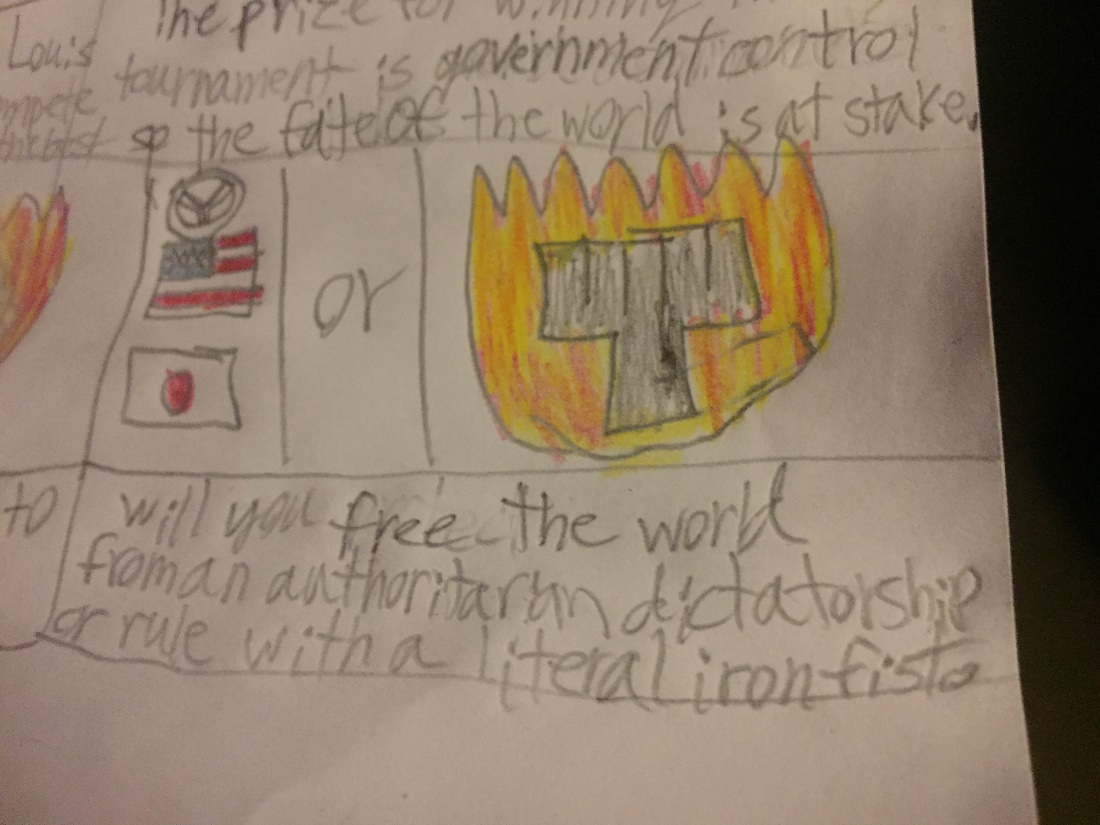 The prize for winning
Louis
tournament is government control
so the fate of the world is at stake.
or
to
will you free the world
from an authoritarian dictatorship
or rule with a literal iron fist